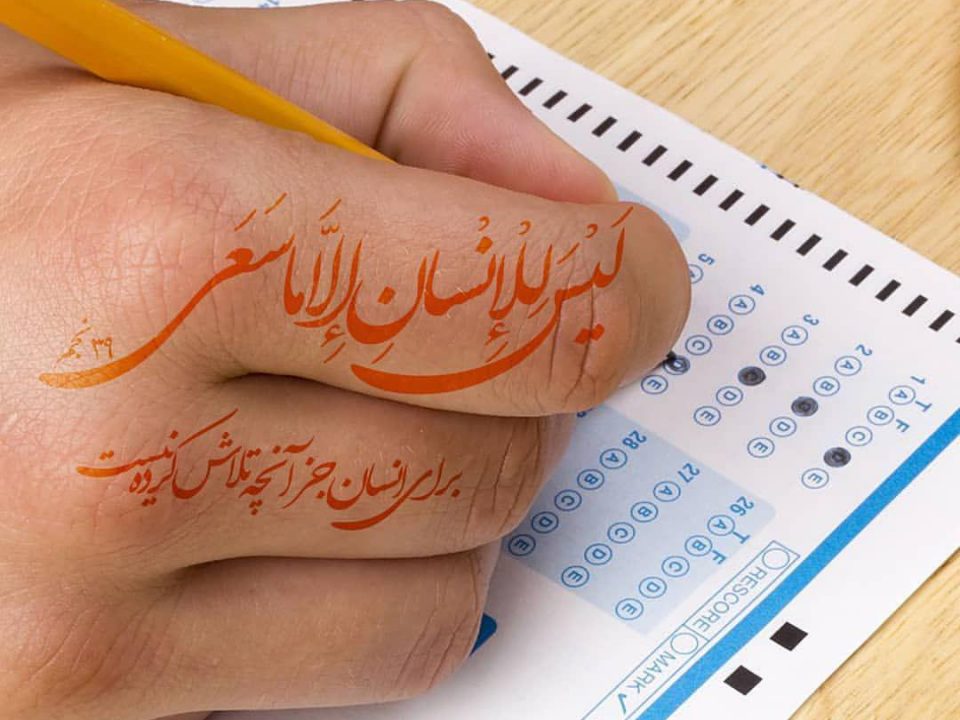 لَيْسَ لِلْإِنْسانِ إِلاَّ ما سَعَى
٣٩ نجم
برای انسان جز آنچه تلاش کرده نیست
1 T F
A B C D E
2
A B C D E
3
A B C D E
4
A B C D E
5
26 T F
A B C D E
27
A B C D E
28
A B C D E
RESCORE MARK